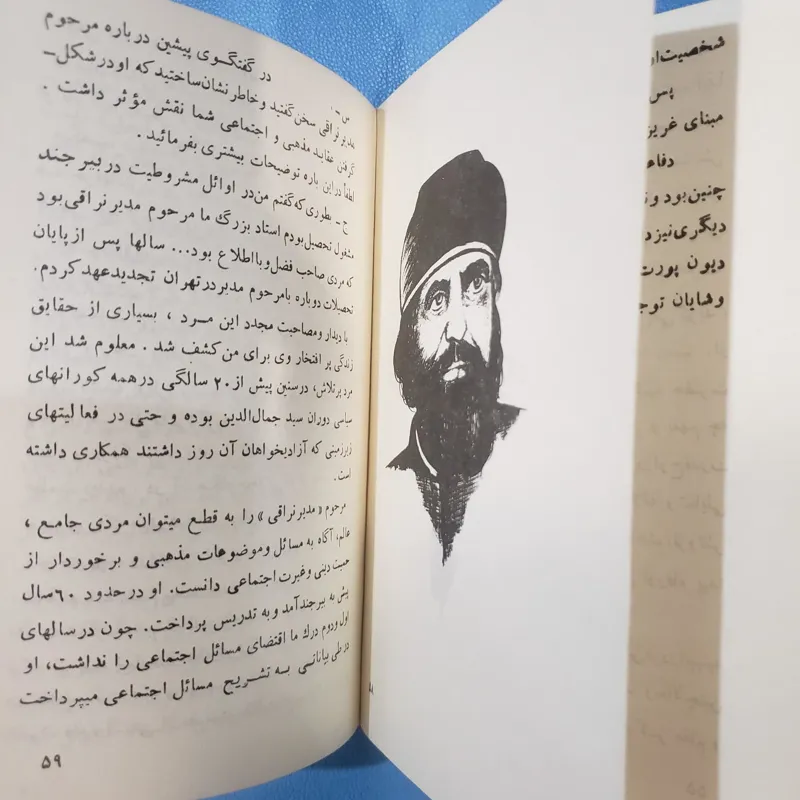 در گفتگوی پیشین درباره مرحوم
س ـ
مدیر نراقی سخن گفتید و خاطر نشان ساختید که او در شکل ـ
گرفتن عقاید مذهبی و اجتماعی شما نقش مؤثر داشت .
لطفاً در این باره توضیحات بیشتری بفرمائید .
ج ـ بطوری که گفتم من در اوائل مشروطیت در بیرجند
مشغول تحصیل بودم استاد بزرگ ما مرحوم مدیر نراقی بود
که مردی صاحب فضل و با اطلاع بود... سالها پس از پایان
تحصیلات دوباره با مرحوم مدیر در تهران تجدید عهد کردم.
با دیدار و مصاحبت مجدد این مرد ، بسیاری از حقایق
زندگی پر افتخار وی برای من کشف شد . معلوم شد این
مرد پر تلاش، در سنین بیش از ۲۰ سالگی در همه کورانهای
سیاسی دوران سید جمال‌الدین بوده و حتی در فعالیتهای
زیرزمینی که آزادیخواهان آن روز داشتند همکاری داشته
است.
مرحوم «مدیر نراقی» را به قطع میتوان مردی جامع ،
عالم، آگاه به مسائل وموضوعات مذهبی و برخوردار از
حمیت دینی وغیرت اجتماعی دانست. او در حدود ۶۰ سال
پیش به بیرجند آمد و به تدریس پرداخت. چون در سالهای
اول ودوم درك ما اقتضای مسائل اجتماعی را نداشت، او
در طی بیاناتی به تشریح مسائل اجتماعی میپرداخت
۵۹
شخصیت
پس
مبنای غریز
دفاع
چنین بود و
دیگری نیز
دیون پورت
وشایان توج